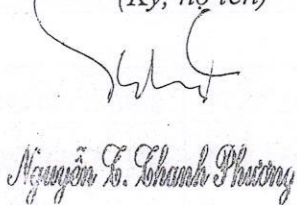 (Ký, họ tên)
Nguyễn T. Thanh Phương